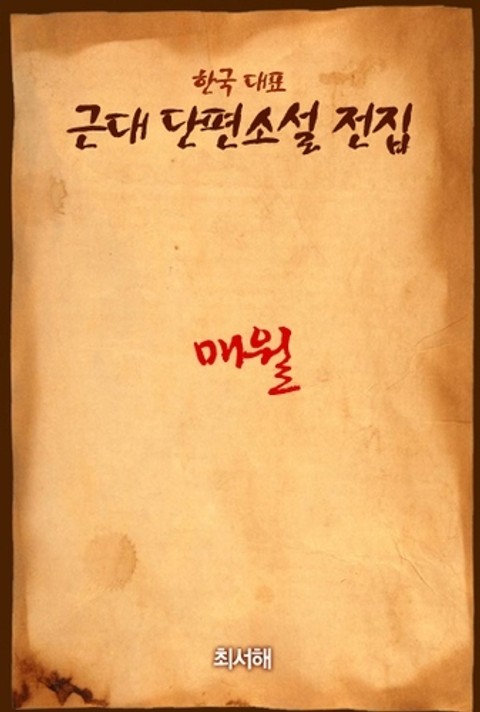 한국 대표
근대 단편소설 전집
매월
최서해